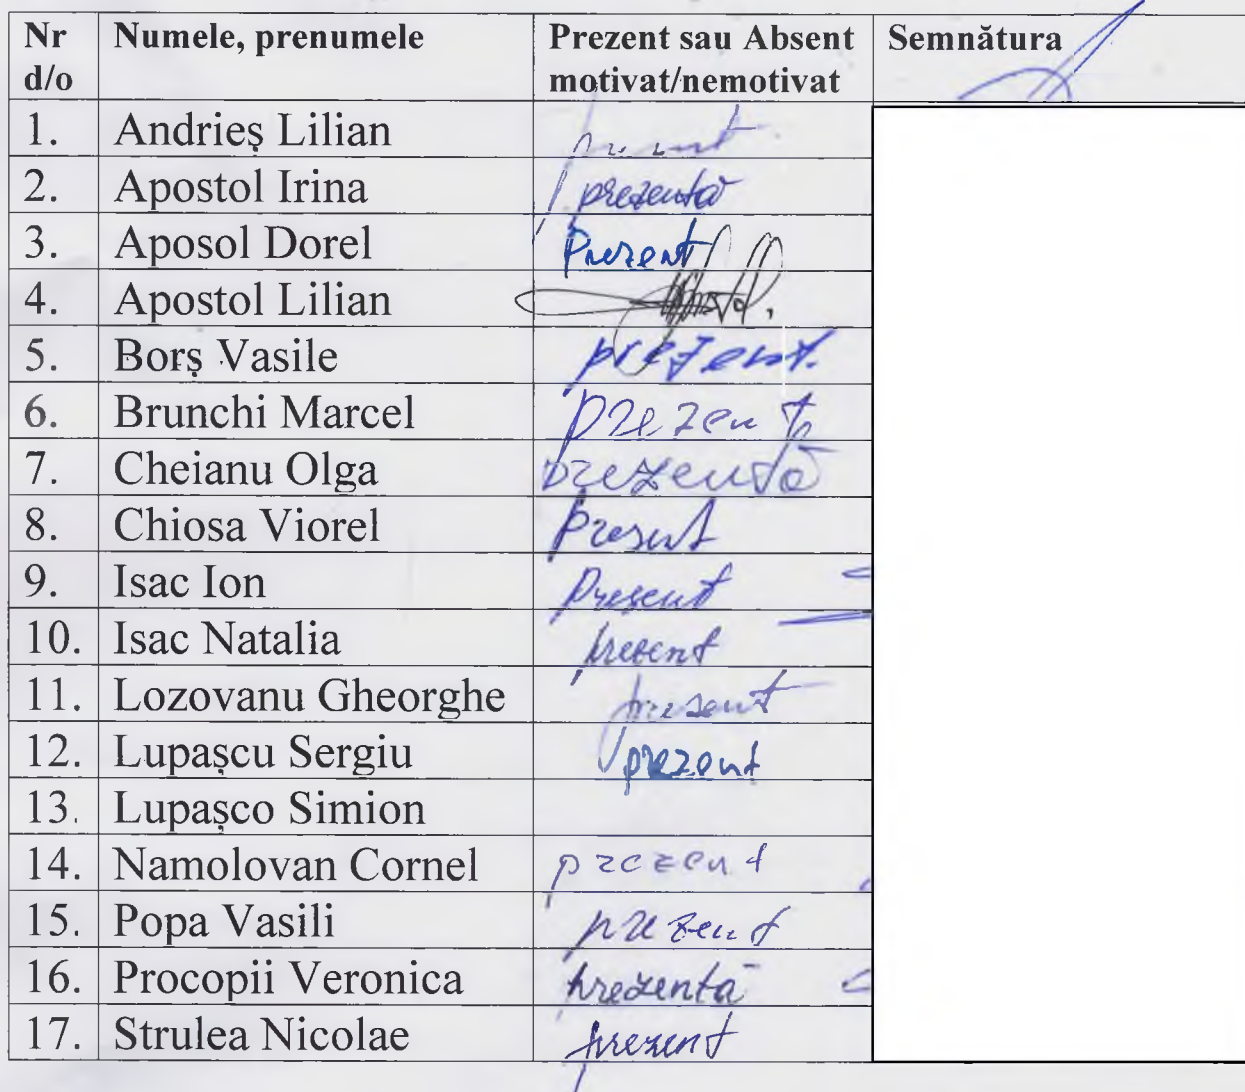 Nr d/o Numele, prenumele Prezent sau Absent motivat/nemotivat Semnătura
1. Andrieș Lilian prezent
2. Apostol Irina prezentă
3. Aposol Dorel Prezent
4. Apostol Lilian
5. Borș Vasile prezent.
6. Brunchi Marcel prezent
7. Cheianu Olga prezentă
8. Chiosa Viorel Prezent
9. Isac Ion Prezent
10. Isac Natalia prezent
11. Lozovanu Gheorghe prezent
12. Lupașcu Sergiu prezent
13. Lupașco Simion
14. Namolovan Cornel prezent
15. Popa Vasili prezent
16. Procopii Veronica prezentă
17. Strulea Nicolae prezent